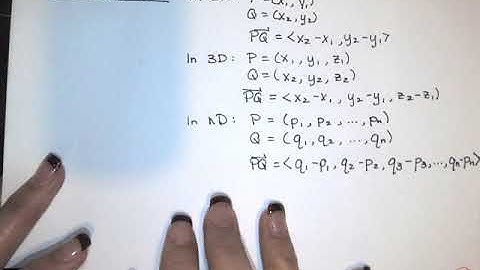 P = (x₁, y₁)
Q = (x₂, y₂)
PQ⃗ = <x₂-x₁, y₂-y₁>
In 3D: P = (x₁, y₁, z₁)
Q = (x₂, y₂, z₂)
PQ⃗ = <x₂-x₁, y₂-y₁, z₂-z₁>
In nD: P = (p₁, p₂, ..., pₙ)
Q = (q₁, q₂, ..., qₙ)
PQ⃗ = <q₁-p₁, q₂-p₂, q₃-p₃, ..., qₙ-pₙ>